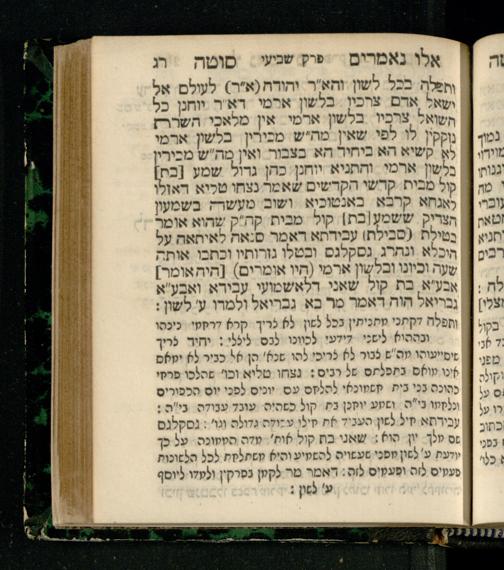 אלו נאמרים פרק שביעי סוטה רג
ותפלה בכל לשון והא״ר יהודה (א״ר) לעולם אל
ישאל אדם צרכיו בלשון ארמי דא״ר יוחנן כל
השואל צרכיו בלשון ארמי אין מלאכי השרת
נזקקין לו לפי שאין מה״ש מכירין בלשון ארמי
לא קשיא הא ביחיד הא בצבור ואין מה״ש מכירין
בלשון ארמי והתניא יוחנן כהן גדול שמע [בת]
קול מבית קדשי הקדשים שאמר נצחו טליא דאזלו
לאגחא קרבא באנטוכיא ושוב מעשה בשמעון
הצדיק ששמע [בת] קול מבית קה״ק שהוא אומר
בטילת (סבילת) עבידתא דאמר סנאה לאיתאה על
היכלא ונהרג גסקלגם ובטלו גזרותיו וכתבו אותה
שעה וכיונו ובלשון ארמי (היו אומרים) [היה אומר]
אבע״א בת קול שאני דלאשמועי עבידא ואבע״א
גבריאל הוה דאמר מר בא גבריאל ולמדו ע׳ לשון :
ותפלה דקתני מתניתין בכל לשון לא צריך קרא דרחמי נינהו
ובההוא לישני דידעי לכווני לבם ליצלי : יחיד צריך
שיסייעוהו מה״ש צבור לא צריכי להו שנא׳ הן אל כביר לא ימאס
אינו מואס בתפלתם של רבים : נצחו טליא וכו׳ שהלכו פרחי
כהונה בני בית חשמונאי להלחם עם יונים לפני יום הכפורים
ונלחמו בי״ה ושמע יוחנן בת קול כשהיה עובד עבודה בי״ה :
עבידתא חיל לשון העביד את חילו עבודה גדולה וגו׳ : גסקלגם
שם מלך יון הוא : שאני בת קול אות׳ מדה הממונה על כך
יודעת ע׳ לשון מפני שעשויה להשמיע והיא משתלחת לכל הלשונות
פעמים לזה ופעמים לזה : דאמר מר לקמן בפרקין ולמדו ליוסף
ע׳ לשון :